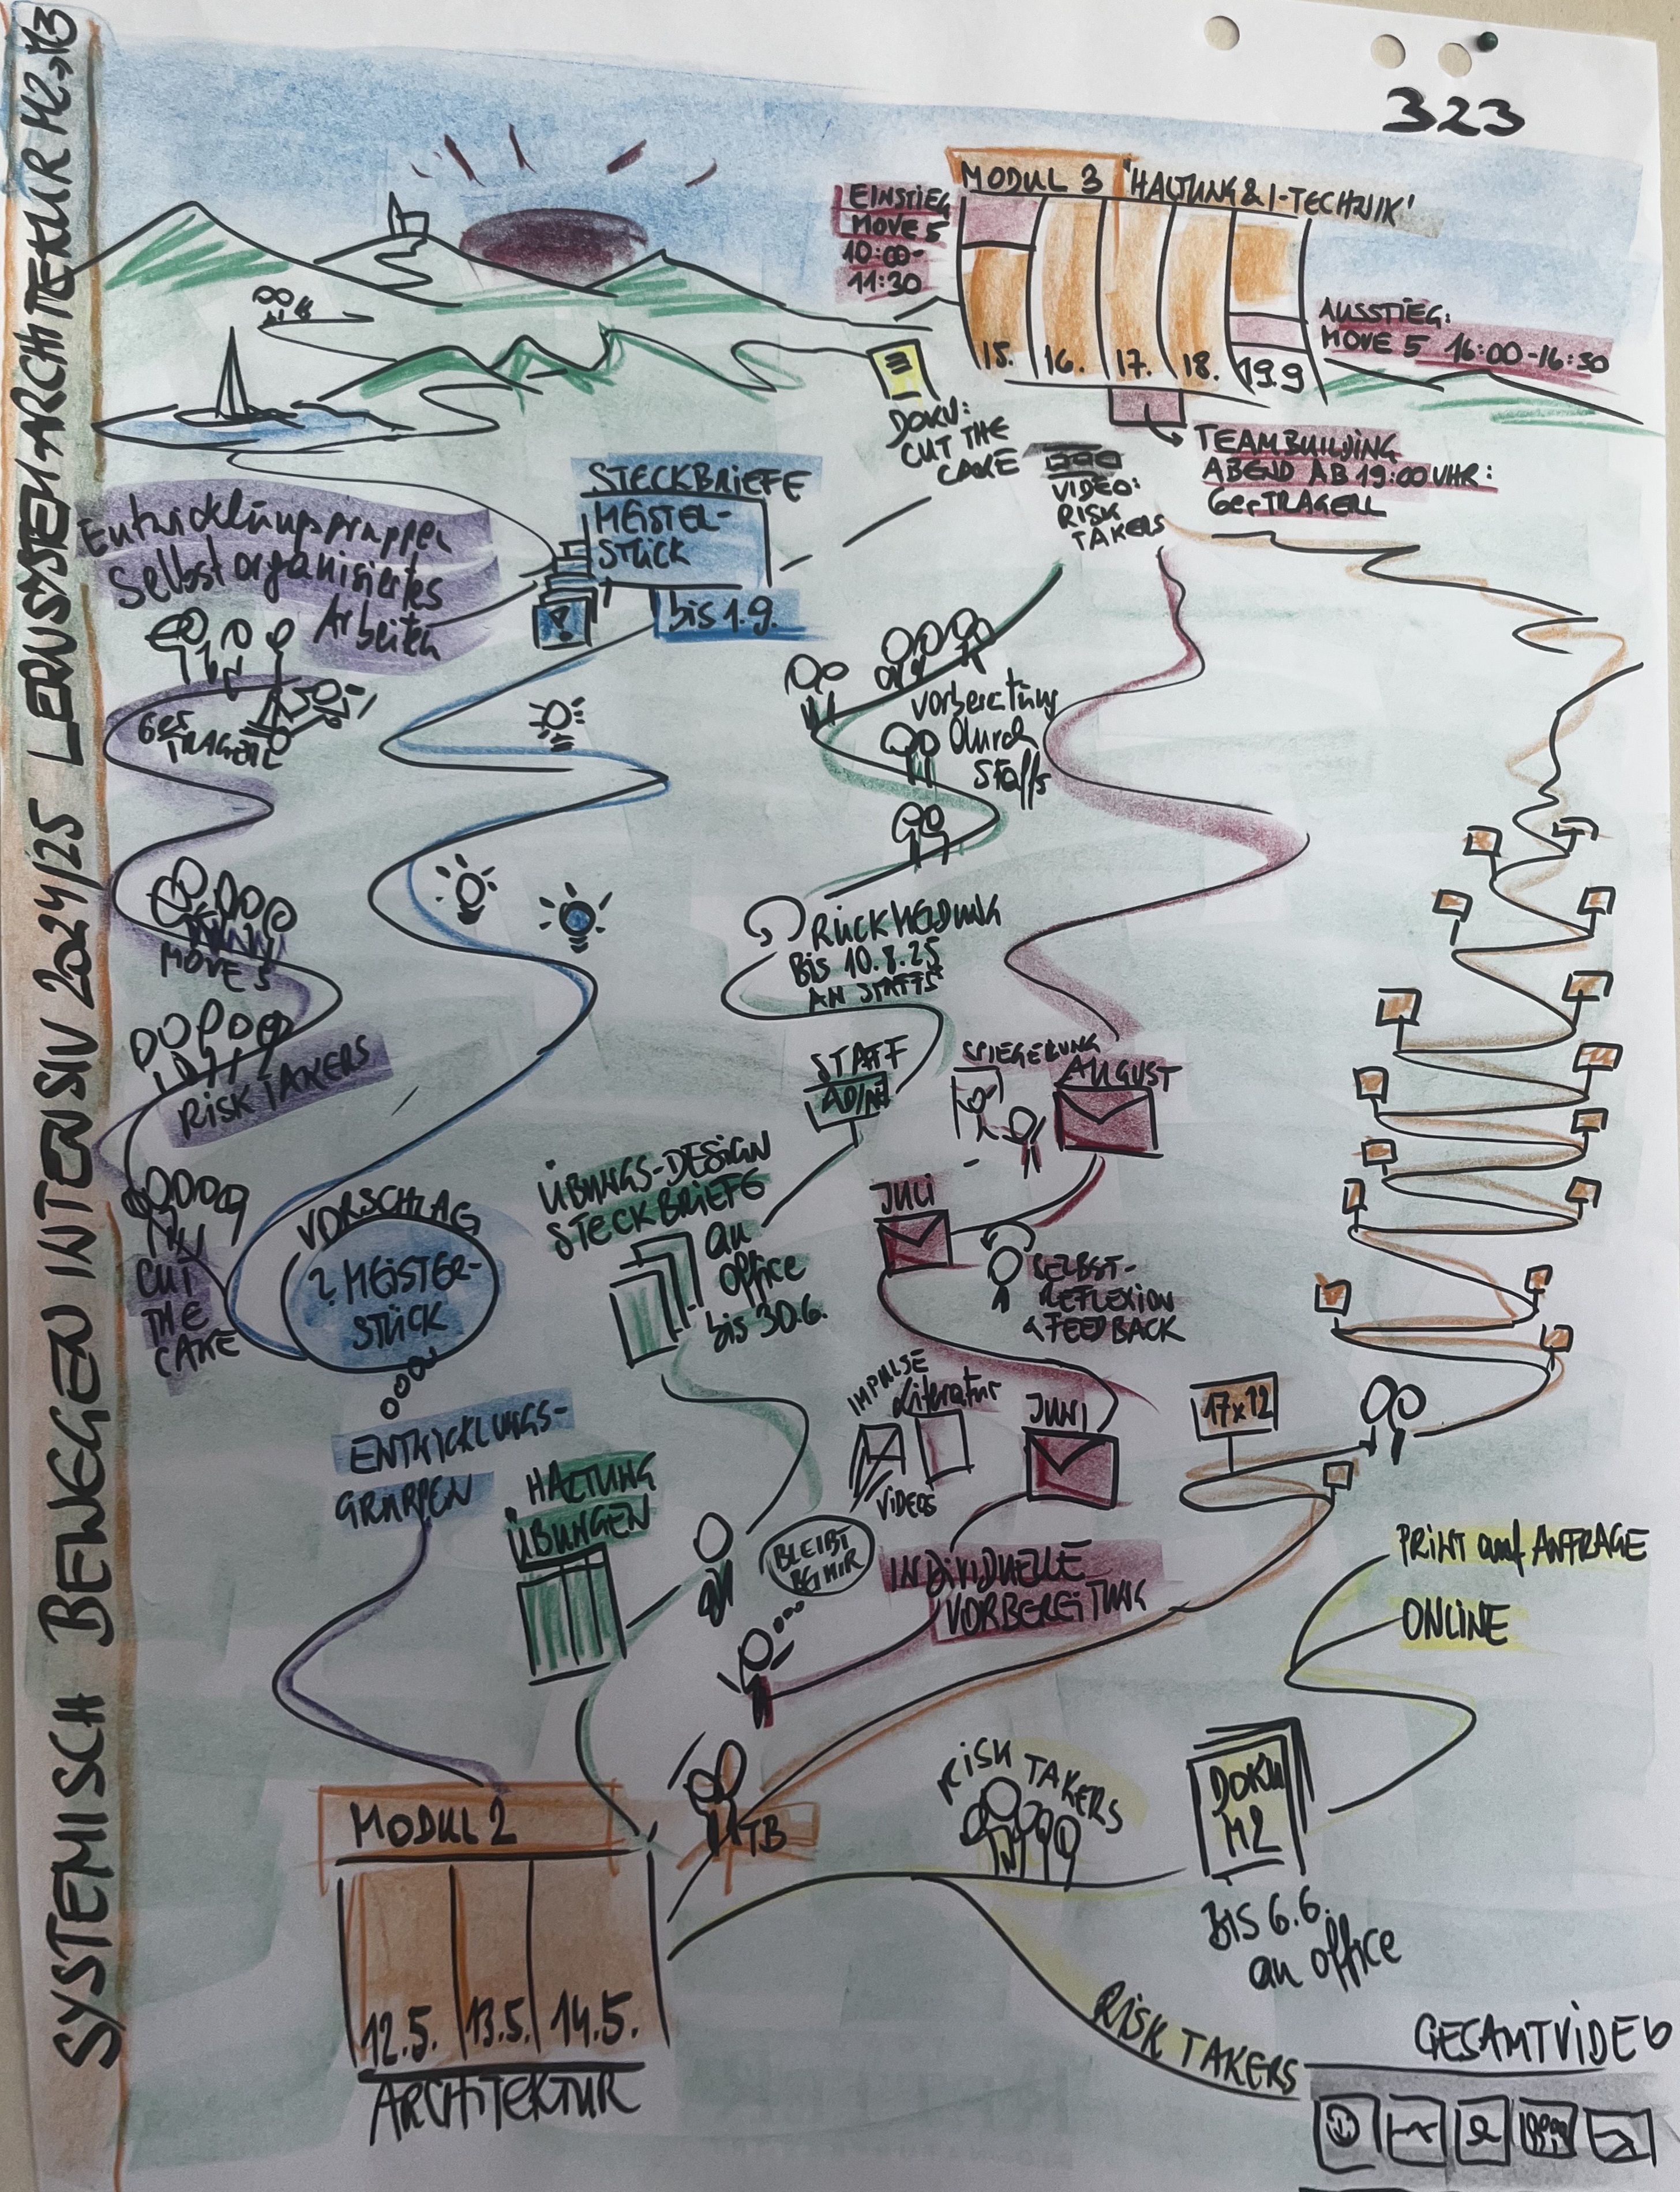 SYSTEMISCH BEWEGEN INTENSIV 2024/25 LERNSYSTEMARCHITEKTUR M2→M3
323
MODUL 3 "HALTUNG & I-TECHNIK"
EINSTIEG
MOVE 5
10:00-
11:30
15. 16. 17. 18. 19.9
AUSSTIEG:
MOVE 5 16:00-16:30
DOKU:
CUT THE
CAKE
VIDEO:
RISK
TAKERS
TEAMBUILDING
ABEND AB 19:00 UHR:
6erTRAGERL
STECKBRIEFE
MEISTER-
STÜCK
bis 1.9.
Entwicklungsgruppen
Selbstorganisiertes
Arbeiten
6er
TRAGERL
MOVE 5
RISK TAKERS
CUT
THE
CAKE
VORSCHLAG
? MEISTER-
STÜCK
ENTWICKLUNGS-
GRUPPEN
Vorbereitung
durch
Staffs
RÜCKMELDUNG
Bis 10.8.25
AN STAFFS
STAFF
ÜBUNGS-DESIGN
STECKBRIEFE
an
office
bis 30.6.
HALTUNG
ÜBUNGEN
SPIEGELUNG
AUGUST
JULI
SELBST-
REFLEXION
& FEEDBACK
IMPULSE
Literatur
VIDEOS
JUNI
BLEIBT
BEI MIR
INDIVIDUELLE
VORBEREITUNG
17x12
PRINT auf ANFRAGE
ONLINE
TB
RISK TAKERS
DOKU
M2
BIS 6.6.
an office
MODUL 2
12.5. 13.5. 14.5.
ARCHITEKTUR
RISK TAKERS
GESAMTVIDEO